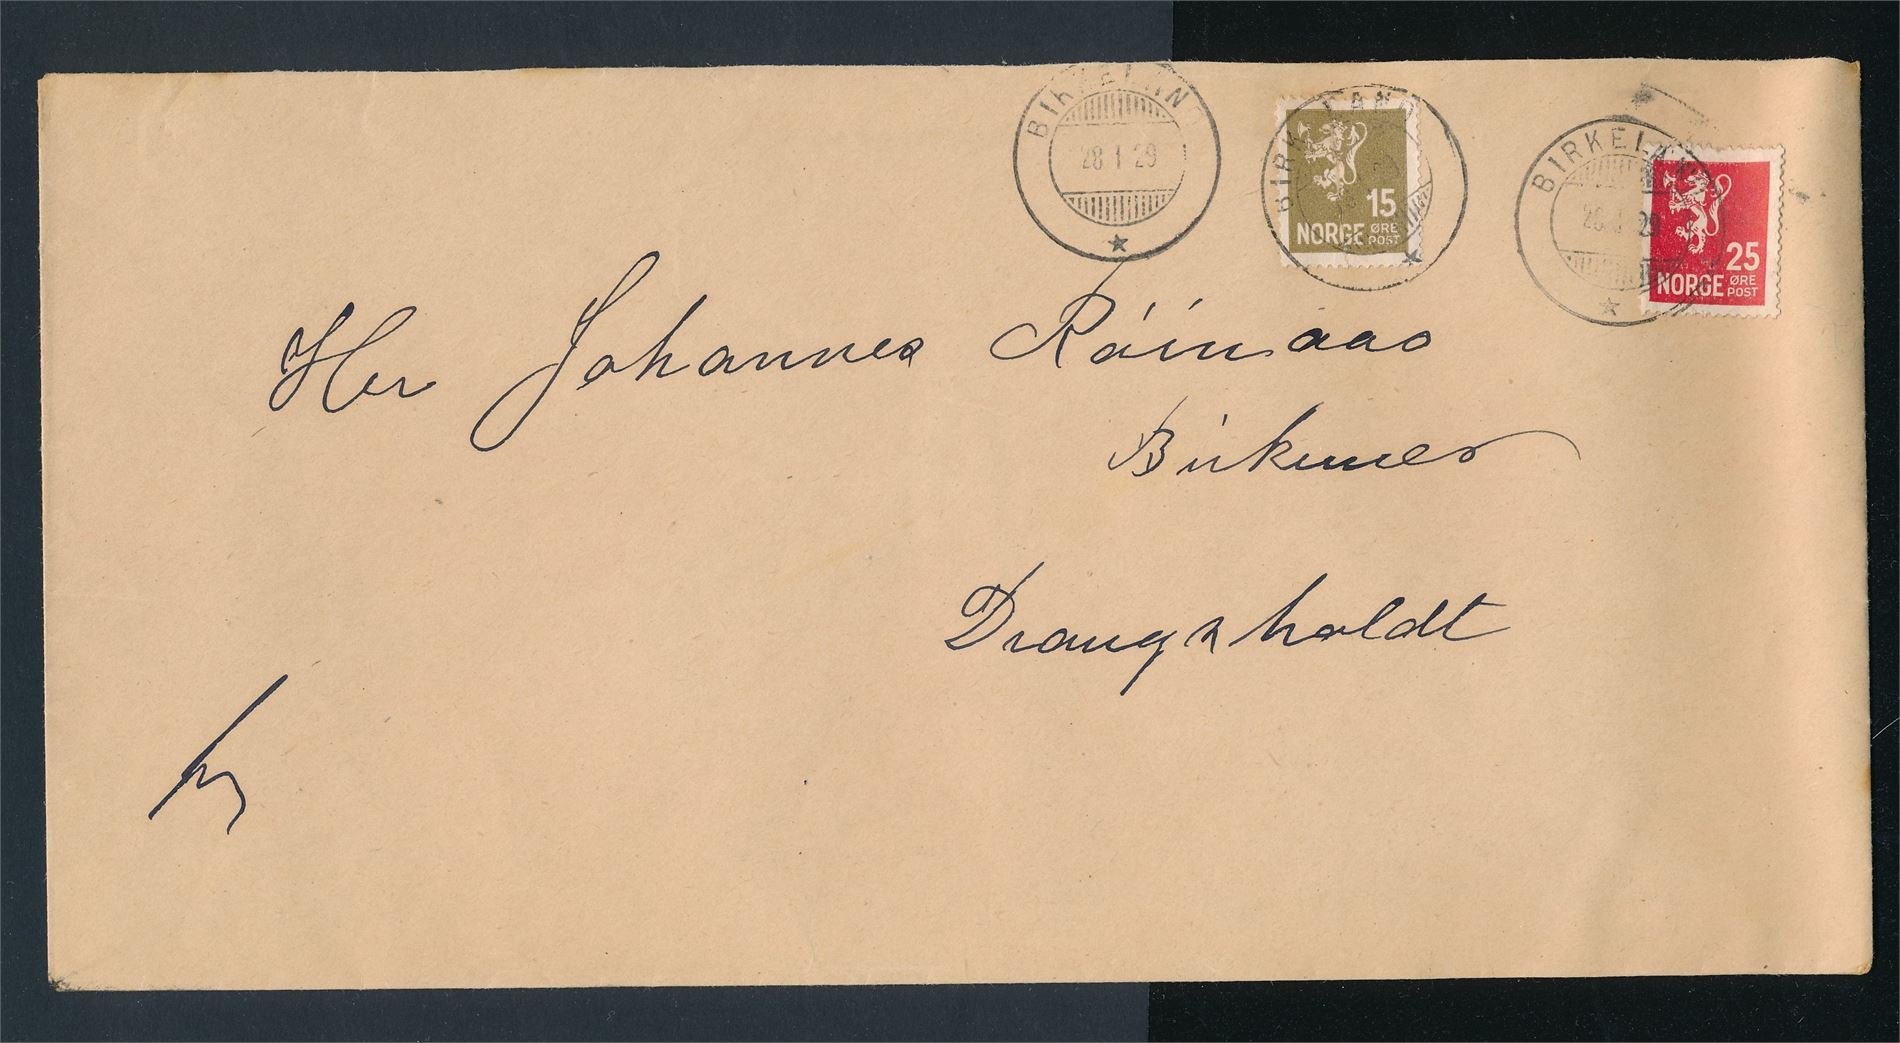 BIRKELAND
28 1 29
BIRKELAND
15
NORGE ØRE POST
BIRKELAND
28 1 29
25
NORGE ØRE POST
Her Johannes Röinaas
Birkenes
Draugsholdt